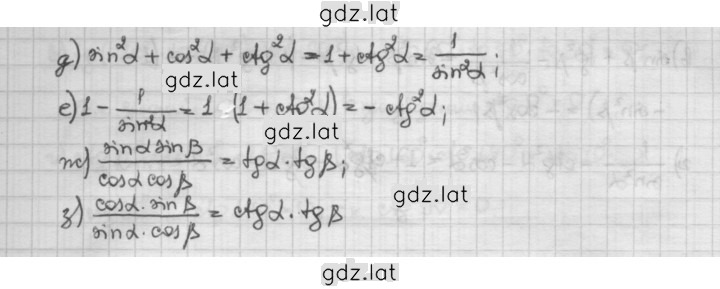 gdz.lat
д) sin²α + cos²α + ctg²α = 1 + ctg²α = 1/sin²α;
gdz.lat
е) 1 - 1/sin²α = 1 - (1 + ctg²α) = - ctg²α;
gdz.lat
ж) sinα sinβ / cosα cosβ = tgα · tgβ;
gdz.lat
з) cosα · sinβ / sinα · cosβ = ctgα · tgβ
gdz.lat